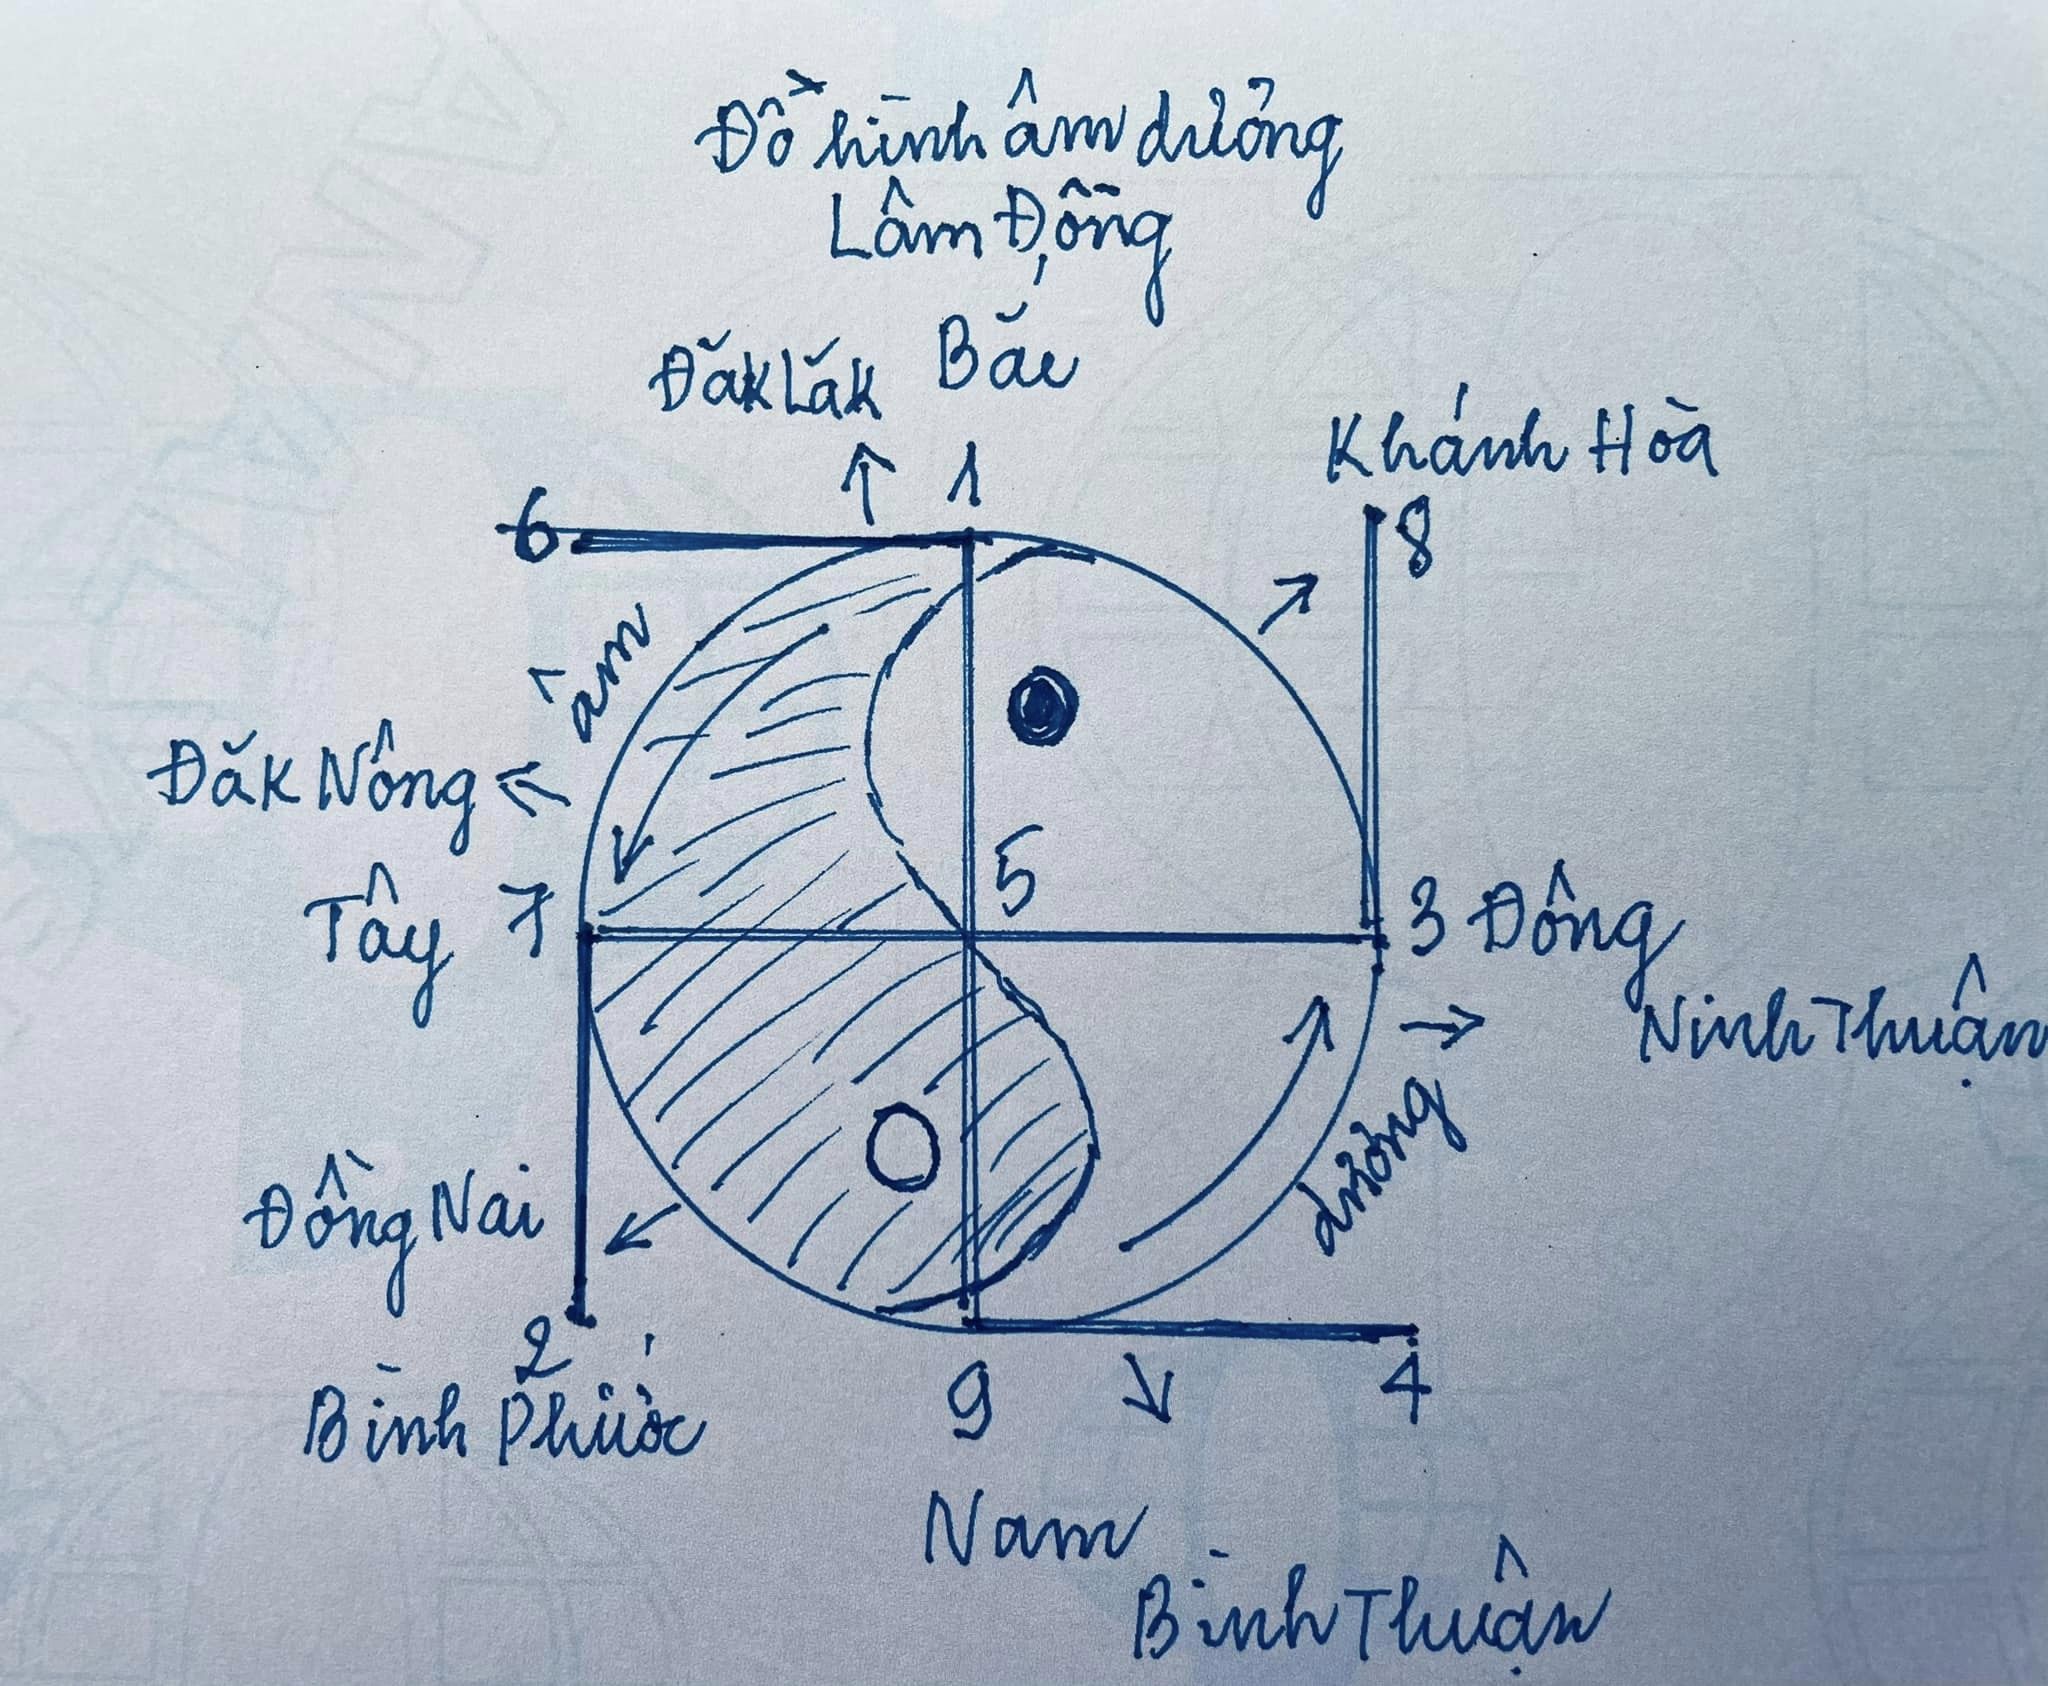 Đồ hình âm dương
Lâm Đồng
Đăk Lăk Bắc
Khánh Hòa
6 1 8
âm
Đăk Nông
Tây 7 5 3 Đông
Ninh Thuận
dương
Đồng Nai
2 9 4
Bình Phước
Nam
Bình Thuận